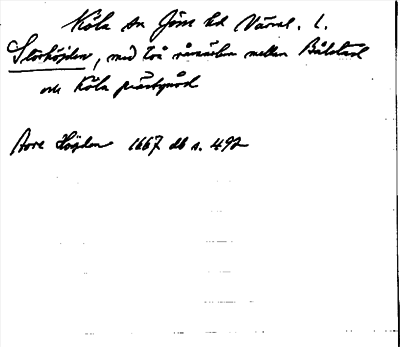 Köla sn Jösse hd Värml. l.
Storhöjden, med två råmärken mellan Bålstad
och Köla prästgård
Store Höjden 1667 db s. 492